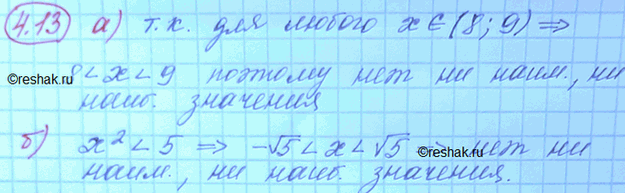 4.13 а) т.к. для любого x ∈ (8; 9) ⇒
8 < x < 9 поэтому нет ни наим., ни
наиб. значения
©reshak.ru ©reshak.ru
б) x² < 5 ⇒ -√5 < x < √5 ⇒ нет ни
наим., ни наиб. значения.
©reshak.ru